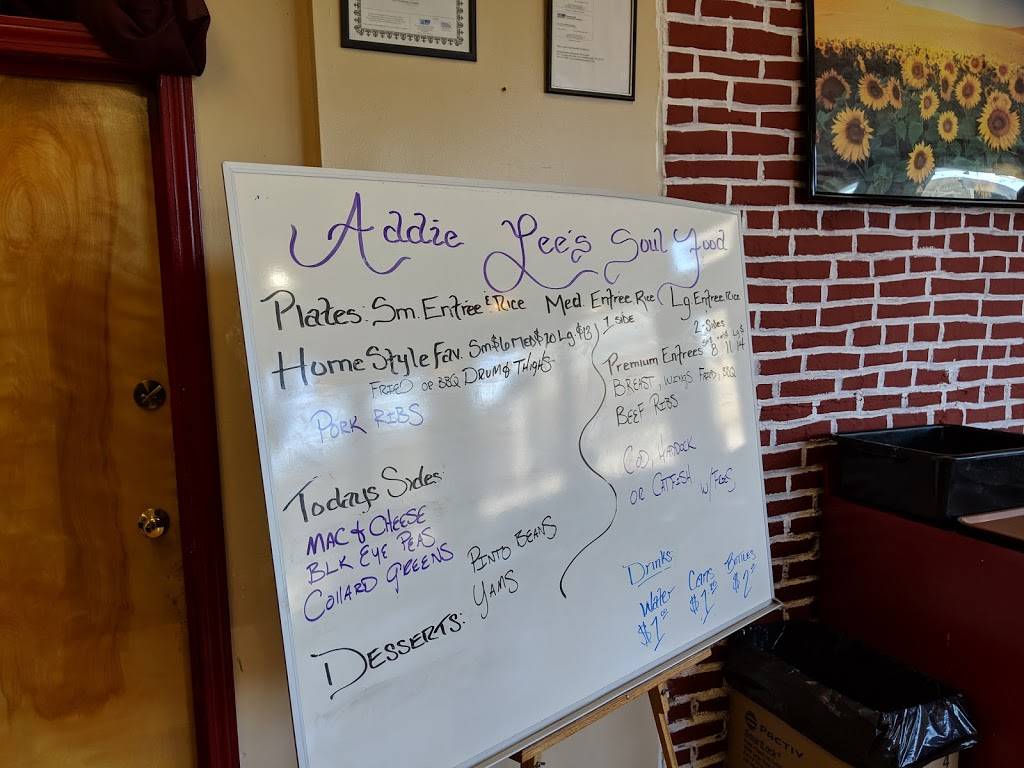 Addie Lee's Soul Food
Plates: Sm. Entree & Rice Med. Entree Rice Lg Entree Rice
1 Side
2-Sides
Home Style Fav.
Fried or BBQ Drum & Thighs
Pork Ribs
Premium Entrees 8 11 14
Breast, Wings Fried, BBQ
Beef Ribs
Cod, Haddock
or Catfish
Todays Sides
Mac & Cheese
Blk Eye Peas
Collard Greens
Pinto Beans
Yams
Desserts:
Drinks:
Water Cans Bottles
$1 $1 $2
PACTIV